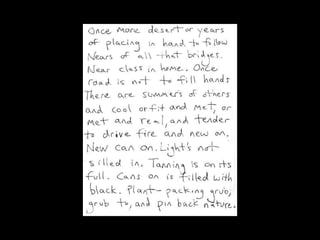 Once more desert or years
of placing in hand to follow
Nears of all that bridges.
Near class in home. Once
road is not to fill hands
There are summers of others
and cool orfit and met, or
met and real, and tender
to drive fire and new on.
New can on. Light's not
silled in. Tanning is on its
full. Cans on is filled with
black. Plant-packing grub,
grub to, and pin back nature.